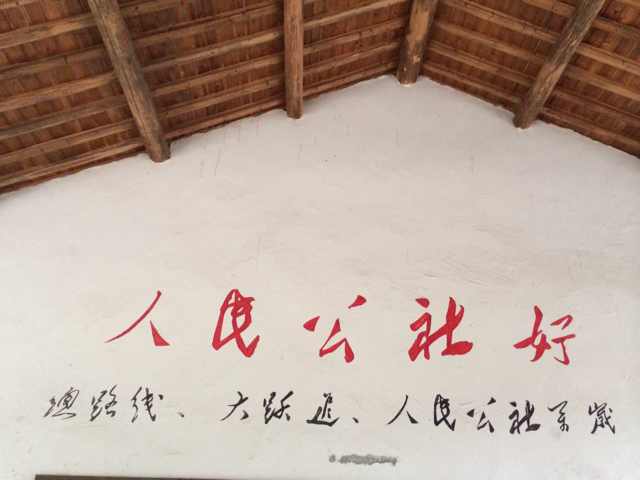 人民公社好
总路线、大跃进、人民公社万岁